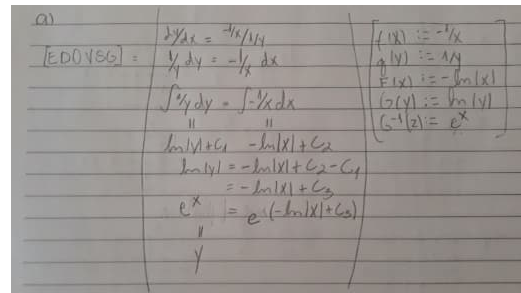 a)
[EDOVSG] =
dy/dx = -1/x/1/y
1/y dy = -1/x dx
∫1/y dy = ∫-1/x dx
= =
ln|y|+C1 -ln|x|+C2
ln|y| = -ln|x|+C2-C1
= -ln|x|+C3
e^x = e^(-ln|x|+C3)
=
y
f(x) := -1/x
g(y) := 1/y
F(x) := -ln|x|
G(y) := ln|y|
G^-1(z) := e^x